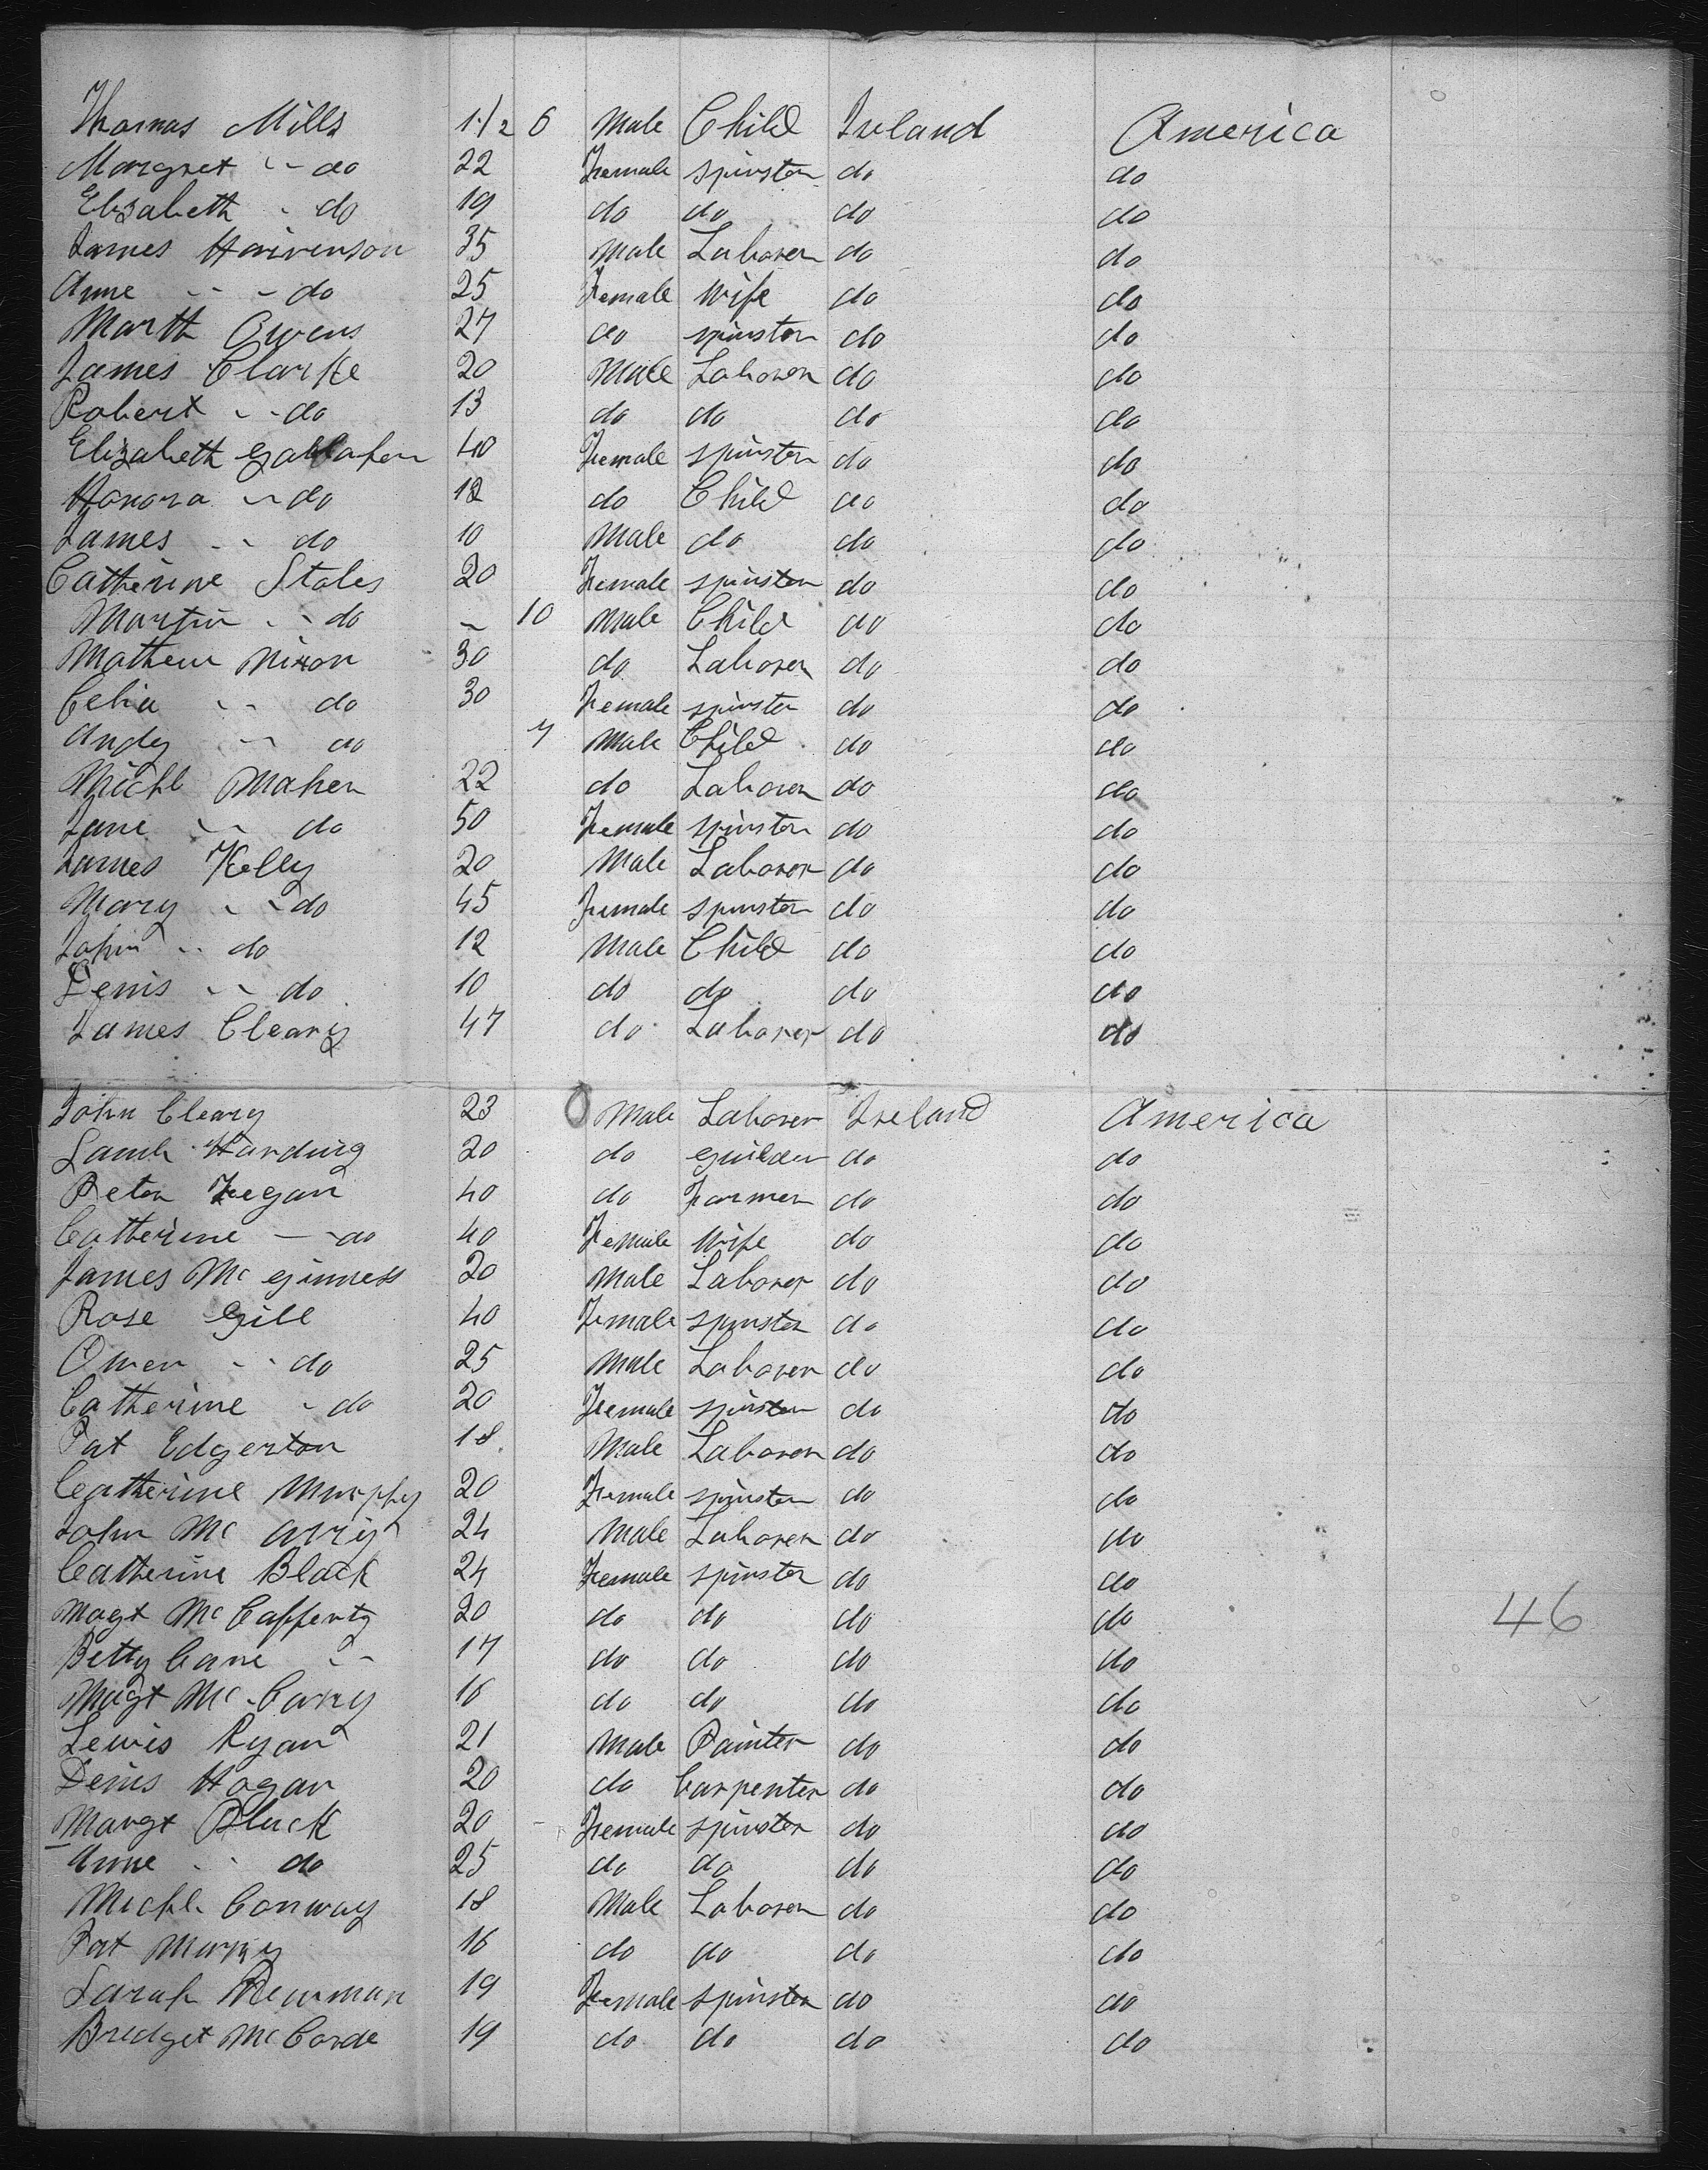 Thomas Mills 1 1/2 6 Male Child Ireland America
Margret " do 22 Female spinster do do
Elizabeth " do 19 do do do do
James 35 Male Laborer do do
Anne - - do 25 Female Wife do do
Marth Owens 27 do spinster do do
James Clarke 20 Male Laborer do do
Robert - - do 13 do do do do
Elizabeth Gallaher 40 Female spinster do do
Honora - do 12 do Child do do
James - - do 10 Male do do do
Catherine Stales 20 Female spinster do do
Martin - - do - 10 Male Child do do
Mathew Nixon 30 do Laborer do do
Celia - - do 30 Female spinster do do
Andy - do 7 Male Child do do
Michl Maher 22 do Laborer do do
Jane - - do 50 Female spinster do do
James Kelly 20 Male Laborer do do
Mary - - do 45 Female spinster do do
John - - do 12 Male Child do do
Denis - - do 10 do do do do
James Cleary 47 do Laborer do do
John Cleary 23 Male Laborer Ireland America
Saml Harding 20 do do do
Peter Fegan 40 do Farmer do do
Catherine - - do 40 Female Wife do do
James Mc Ginness 20 Male Laborer do do
Rose Gill 40 Female spinster do do
Owen - - do 25 Male Laborer do do
Catherine - do 20 Female spinster do do
Pat Edgerton 18 Male Laborer do do
Catherine Murphy 20 Female spinster do do
John Mc 24 Male Laborer do do
Catherine Black 24 Female spinster do do
Magt Mc Cafferty 20 do do do do
Betty Cane - - 17 do do do do
Magt Mc Carry 16 do do do do
Lewis Ryan 21 Male Painter do do
Denis Hogan 20 do Carpenter do do
Margt Black 20 Female spinster do do
Anne - - do 25 do do do do
Michl Conway 18 Male Laborer do do
Pat 16 do do do do
Sarah Newman 19 Female spinster do do
Bredget Mc Corde 19 do do do do
46